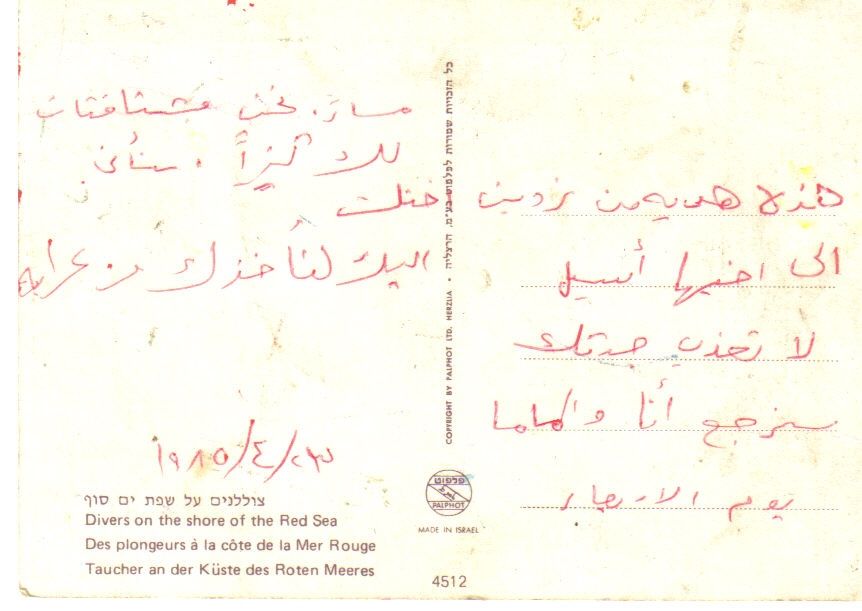 هذه هديه من نردين
الى اخيها أسيل
لا تعذب جدتك
سنرجع أنا والماما
يوم الاربعاء
مساءً. نحن مشتاقتان
لك كثيراً. سنأتي
اليك لنأخذك من عرابه
١٩٨٥/٤/٢٣
כל הזכויות שמורות לפלפוט בע"מ. הרצליה • COPYRIGHT BY PALPHOT LTD. HERZLIA
פלפוט
PALPHOT
MADE IN ISRAEL
צוללנים על שפת ים סוף
Divers on the shore of the Red Sea
Des plongeurs à la côte de la Mer Rouge
Taucher an der Küste des Roten Meeres
4512